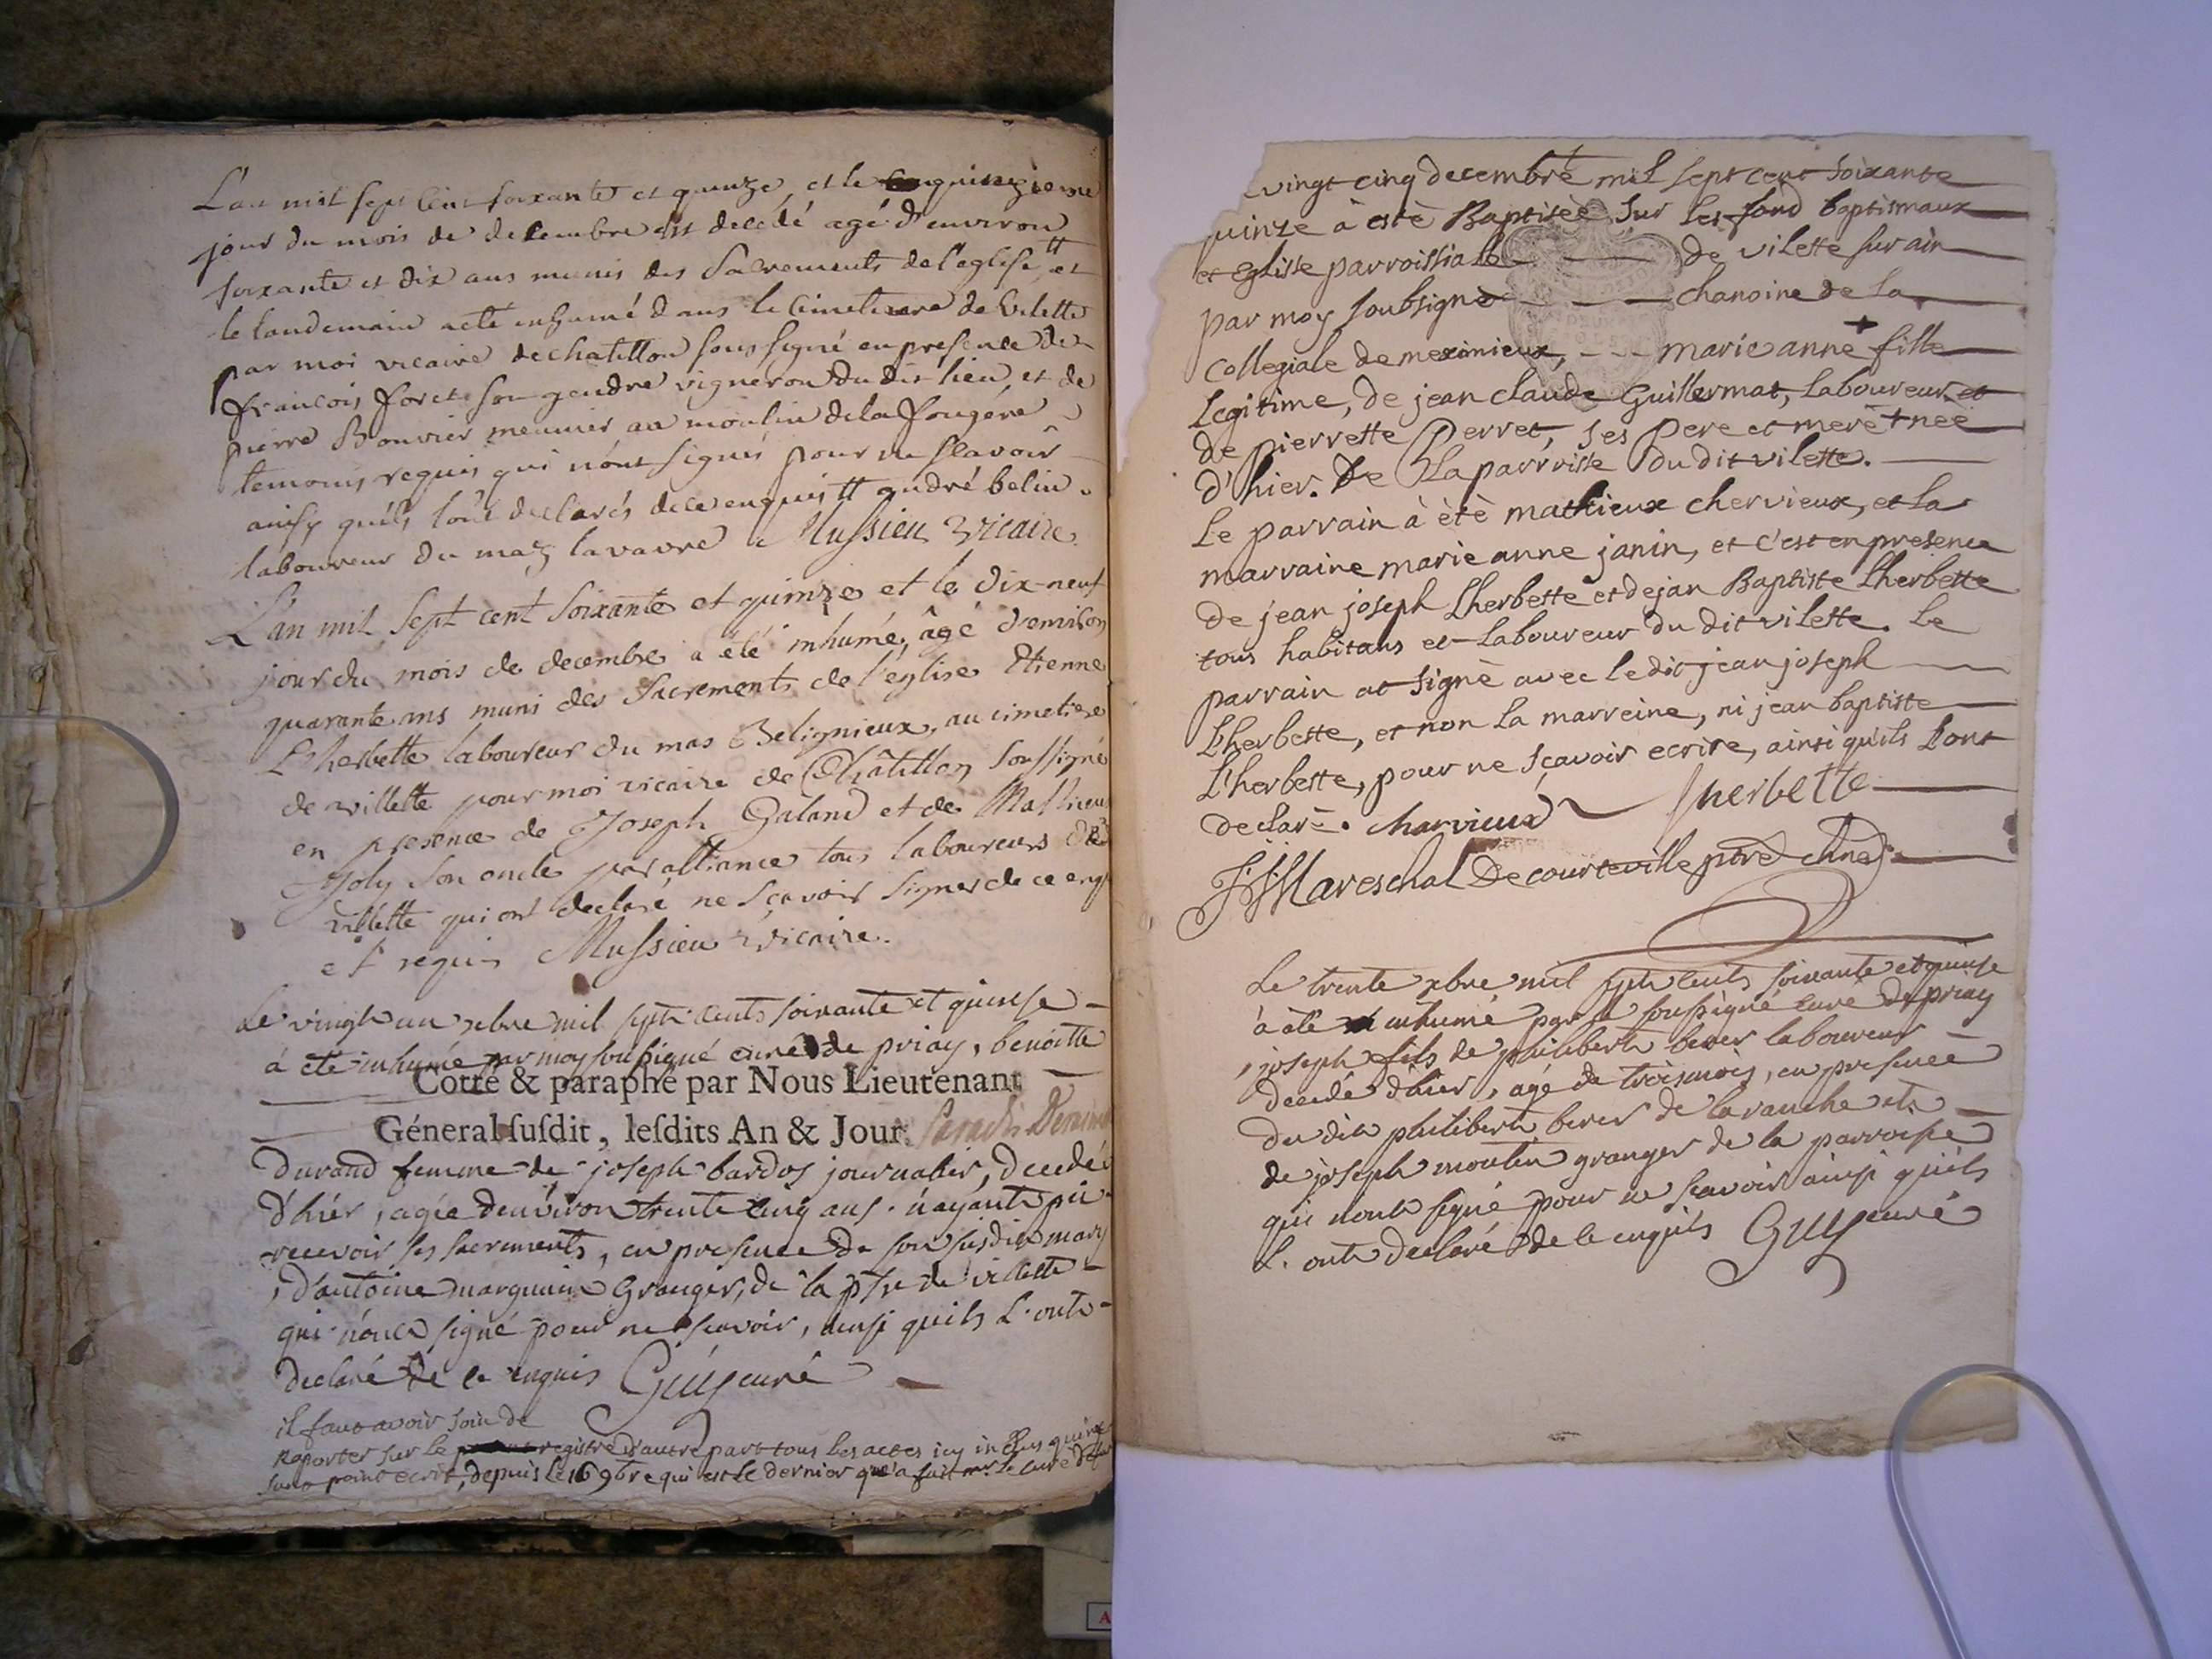 L'an mil sept cent soixante et quinze, et le quinzieme
jour du mois de decembre est decedé agé d'environ
soixante et dix ans munis des Sacrements de l'eglise, tt et
le landemain a eté inhumé dans le Cimetierre de Vilette
par moi vicaire de chatillon sous signé en presence de
francois foret son gendre vigneron du dit lieu, et de
pierre Bouvier meunier au moulin de la fougére
temoins requis qui n'ont signés pour ne sçavoir
ainsy qu'ils l'ont declarés de ce enquis tt andré belin
laboureur du maz lavavre Mussieu vicaire
L'an mil sept cent soixante et quinze et le dix-neuf
jour du mois de decembre a été inhumé, âgé d'environ
quarante ans muni des sacrements de l'église Etienne
L'herbette laboureur du mas Belignieux, au cimetiere
de villette pour moi vicaire de Châtillon Soussigné
en presence de Joseph Galand et de Mathieu
Joly son oncle par alliance tous laboureurs de
villette qui ont declaré ne sçavoir signer de ce enq
et requis Mussieu vicaire.
Le vingt un xbre mil sept cents soixante et quinse
à eté inhumée par moy soussigné curé de priay, benoitte
Cotté & paraphé par Nous Lieutenant
Géneral susdit, lesdits An & Jour.
Durand femme de joseph bardos journalier, decedée
d'hiér, agée d'environ trente cinq ans. n'ayante pû
recevoir ses sacrements, en presence de son susdit mary
, d'antoine marguin Granger, de la psse de villette
qui n'ont signé pour ne scavoir, ainsi quils L'ont
declaré de ce enquis Guy curé
il faut avoir soin de
Raporter sur le registre d'autre part tous les actes icy inclus qui ne
sont point ecrit, depuis le 16 9bre qui est le dernier qu'a fait mr. le curé
vingt cinq decembre mil sept cent soixante
quinze à estè Baptiseè sur les fond baptismaux
et Eglisse parroissialle de vilette sur ain
par moy soubsigné chanoine de la
Collegiale de meximieux, marie anne + fille
Legitime, de jean claude Guillermat, Laboureur et
de pierrette Perret, ses pere et merè + neè
d'hier. De La parroisse du dit vilette.
Le parrain à étè mathieux chervieux, et la
marraine marie anne janin, et c'est en presence
de jean joseph Lherbette et de jan Baptiste Lherbette
tous habitans et Laboureur du dit vilette. Le
parrain at signè avec le dit jean joseph
Lherbette, et non la marreine, ni jean baptiste
Lherbette, pour ne sçavoir ecrire, ainsi qu'ils Lont
declar. charvieux Lherbette
Mareschal De courteville ptre chne
Le trente xbre mil sept cents soixante et quinse
à été inhumé par je soussigné curé de priay
, joseph fils de philibert berer laboureur
decedé d'hier, agé de trois mois, en presence
du dit philibert berer de la ranche et
de joseph moutin granger de la parroisse
qui n'ont signé pour ne scavoir ainsi qu'ils
L'ont declaré de ce enquis Guy curé